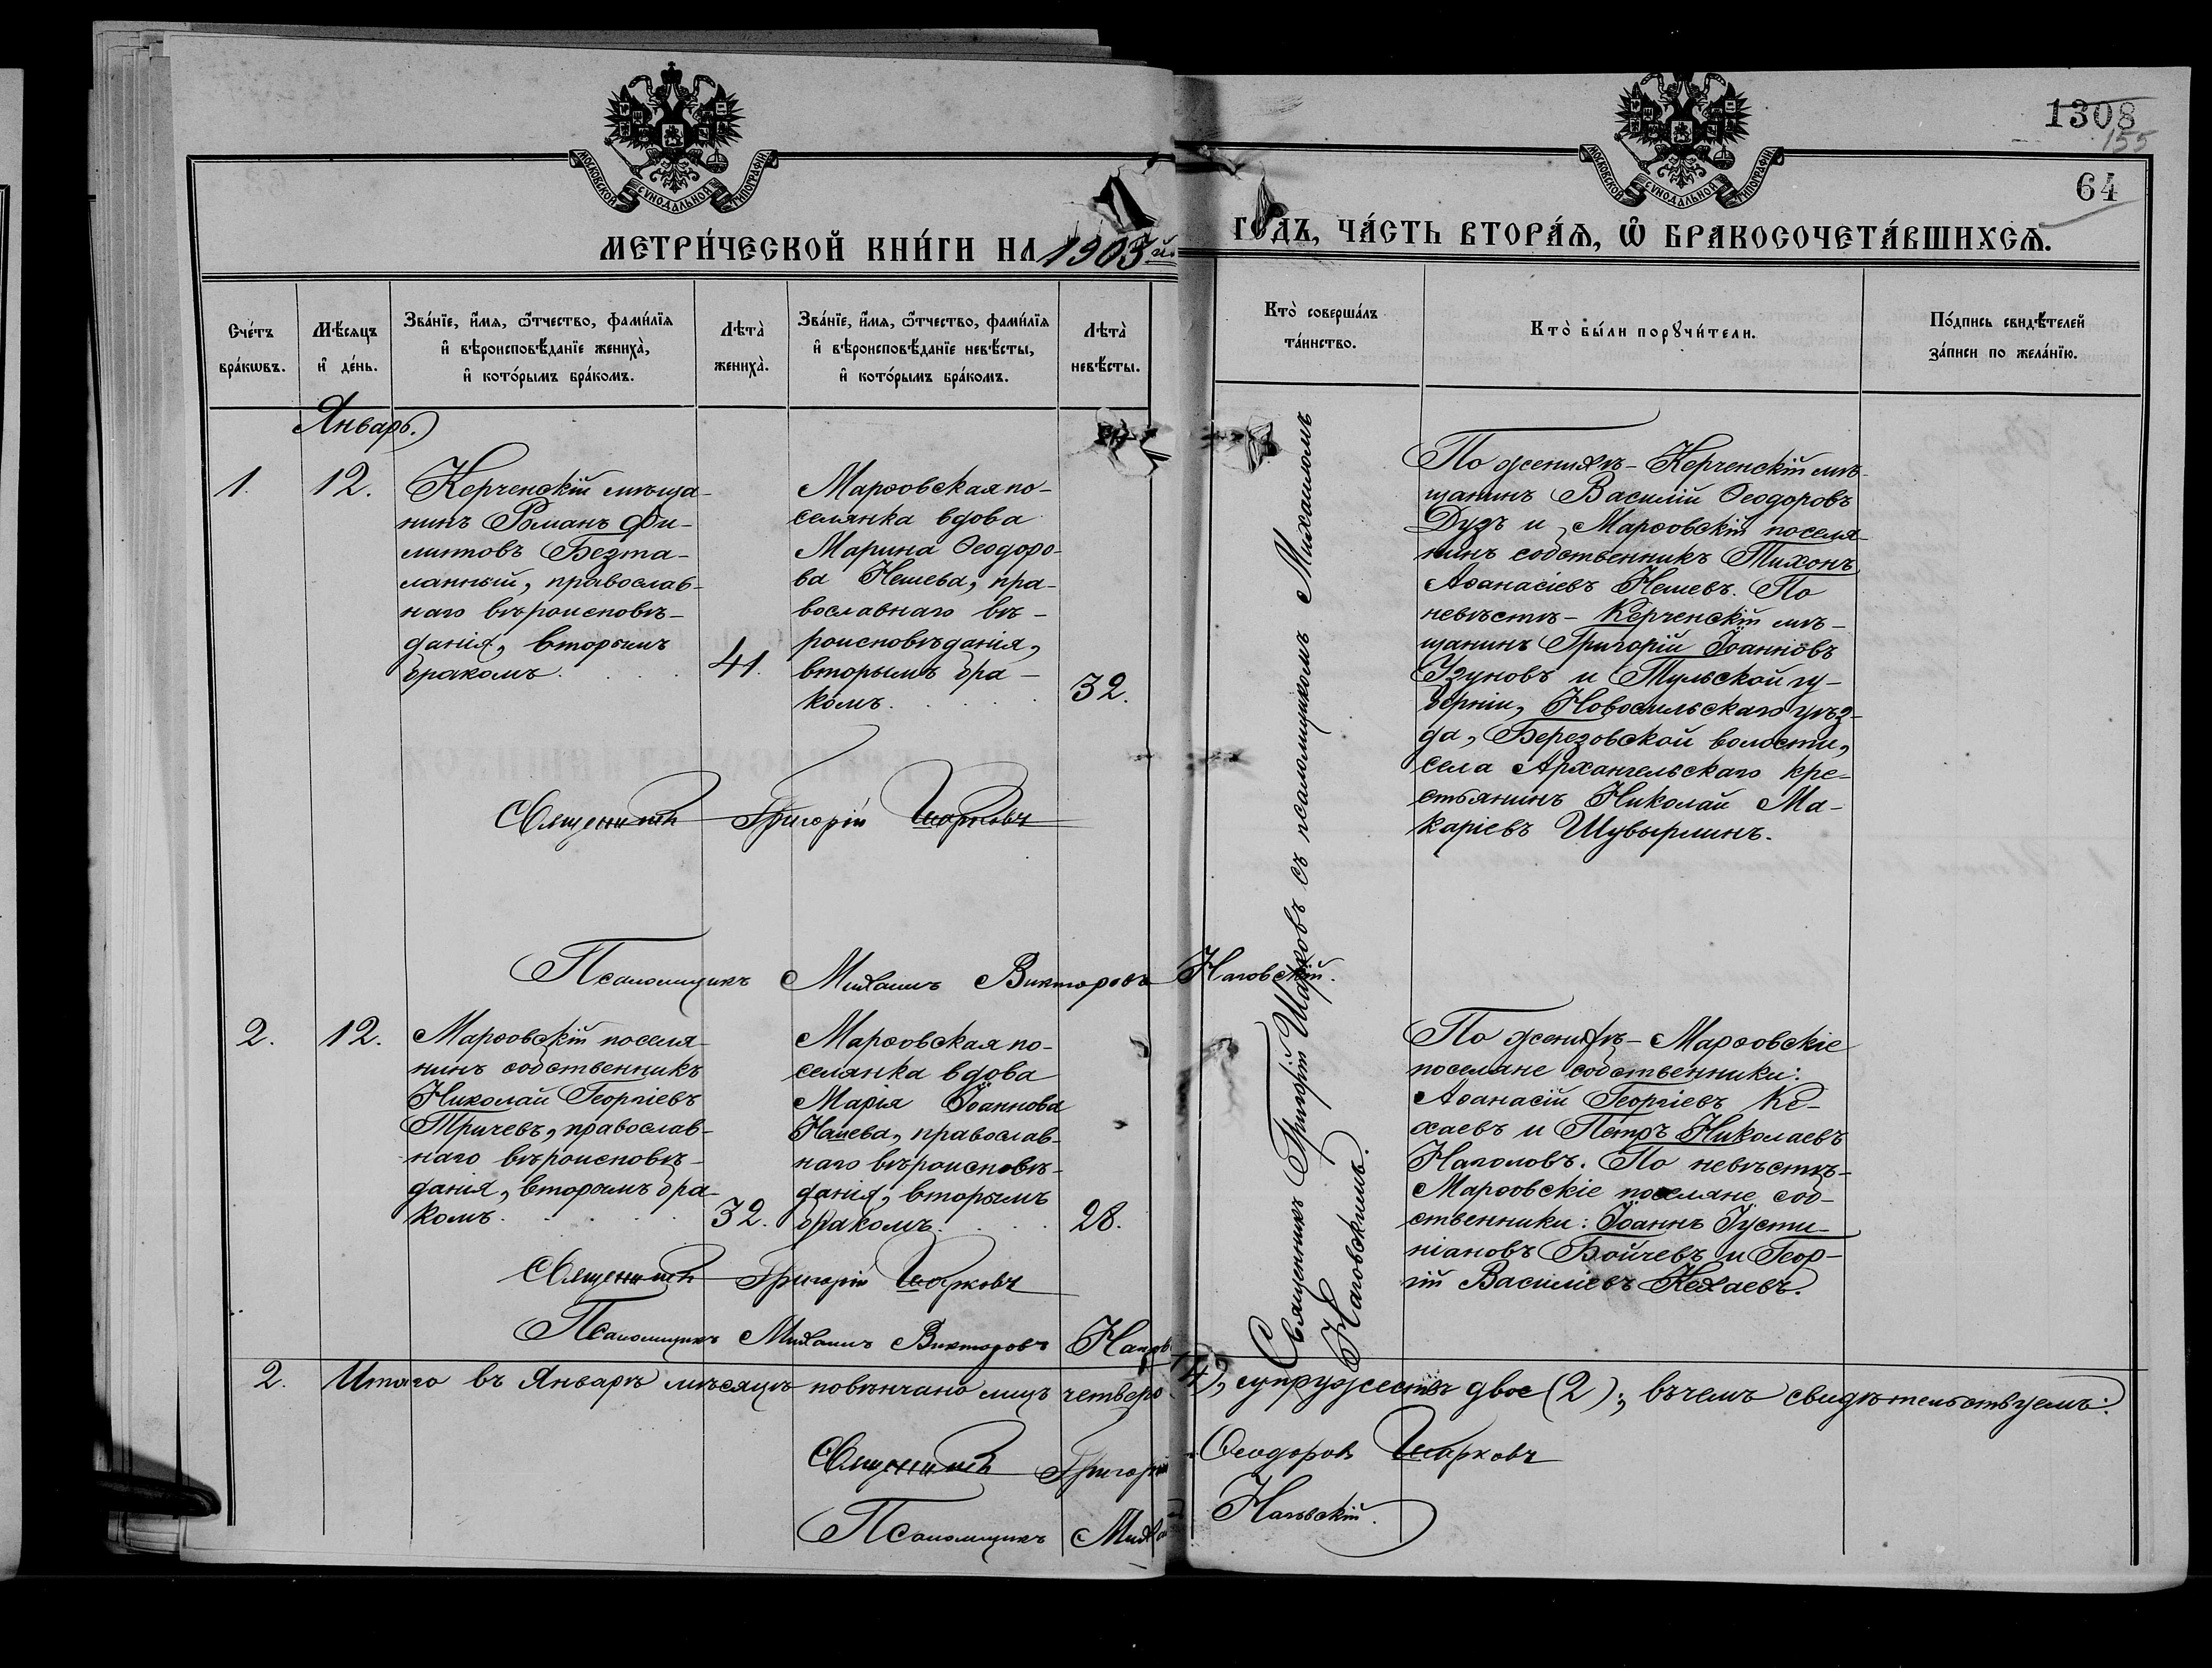 МОСКОВСКОЙ СѴНОДАЛЬНОЙ ТИПОГРАФІИ
МОСКОВСКОЙ СѴНОДАЛЬНОЙ ТИПОГРАФІИ
1308
155
64
МЕТРИ́ЧЕСКОЙ КНИ́ГИ НА 1903й ГОДЪ, ЧА́СТЬ ВТОРА́Ѧ, Ѡ БРАКОСОЧЕТА́ВШИХСѦ.
Сче́тъ
бра́кωвъ.
Мѣ́сяцъ
и҆ де́нь.
Зва́нїе, и҆́мя, ѻ҆́тчество, фами́лїя
и҆ вѣроисповѣ́данїе жениха̀,
и҆ кото́рымъ бра́комъ.
Лѣта̀
жениха̀.
Зва́нїе, и҆́мя, ѻ҆́тчество, фами́лїя
и҆ вѣроисповѣ́данїе невѣ́сты,
и҆ кото́рымъ бра́комъ.
Лѣта̀
невѣ́сты.
Кто̀ соверша́лъ
та́инство.
Кто̀ бы́ли порꙋчи́тели.
По́дпись свидѣ́телей
за́писи по жела́нїю.
Январь.
1.
12.
Керченскій мѣща-
нинъ Романъ Фи-
липповъ Безта-
ланный, православ-
наго вѣроисповѣ-
данія, вторымъ
бракомъ.
41.
Марѳовская по-
селянка вдова
Марина Ѳеодоро-
ва Нешева, пра-
вославнаго вѣ-
роисповѣданія,
вторымъ бра-
комъ.
32.
Священникъ Григорій Шарковъ съ псаломщикомъ Михаиломъ
Наговскимъ.
По женихѣ - Керченскій мѣ-
щанинъ Василій Ѳеодоровъ
Дузъ и Марѳовскій поселя-
нинъ собственникъ Тихонъ
Аѳанасіевъ Нешевъ. По
невѣстѣ - Керченскій мѣ-
щанинъ Григорій Іоанновъ
Узуновъ и Тульской гу-
берніи, Новосильскаго уѣз-
да, Березовской волости,
села Архангельскаго кре-
стьянинъ Николай Ма-
каріевъ Шувырминъ.
Священникъ Григорій Шарковъ
Псаломщикъ Михаилъ Викторовъ Наговскій.
2.
12.
Марѳовскій поселя-
нинъ собственникъ
Николай Георгіевъ
Тричевъ, православ-
наго вѣроисповѣ-
данія, вторымъ бра-
комъ.
32.
Марѳовская по-
селянка вдова
Марія Іоаннова
Начева, православ-
наго вѣроисповѣ-
данія, вторымъ
бракомъ.
28.
По женихѣ - Марѳовскіе
поселяне собственники:
Аѳанасій Георгіевъ Ке-
хаевъ и Петръ Николаевъ
Наголовъ. По невѣстѣ -
Марѳовскіе поселяне соб-
ственники: Іоаннъ Іусти-
ніановъ Бойчевъ и Геор-
гій Василіевъ Кехаевъ.
Священникъ Григорій Шарковъ
Псаломщикъ Михаилъ Викторовъ Нагов
2. Итого въ Январѣ мѣсяцѣ повѣнчано лицъ четверо (4), супружествъ двое (2); въ чемъ свидѣтельствуемъ:
Священникъ Григорій Ѳеодоровъ Шарковъ
Псаломщикъ Михаилъ Наговскій.